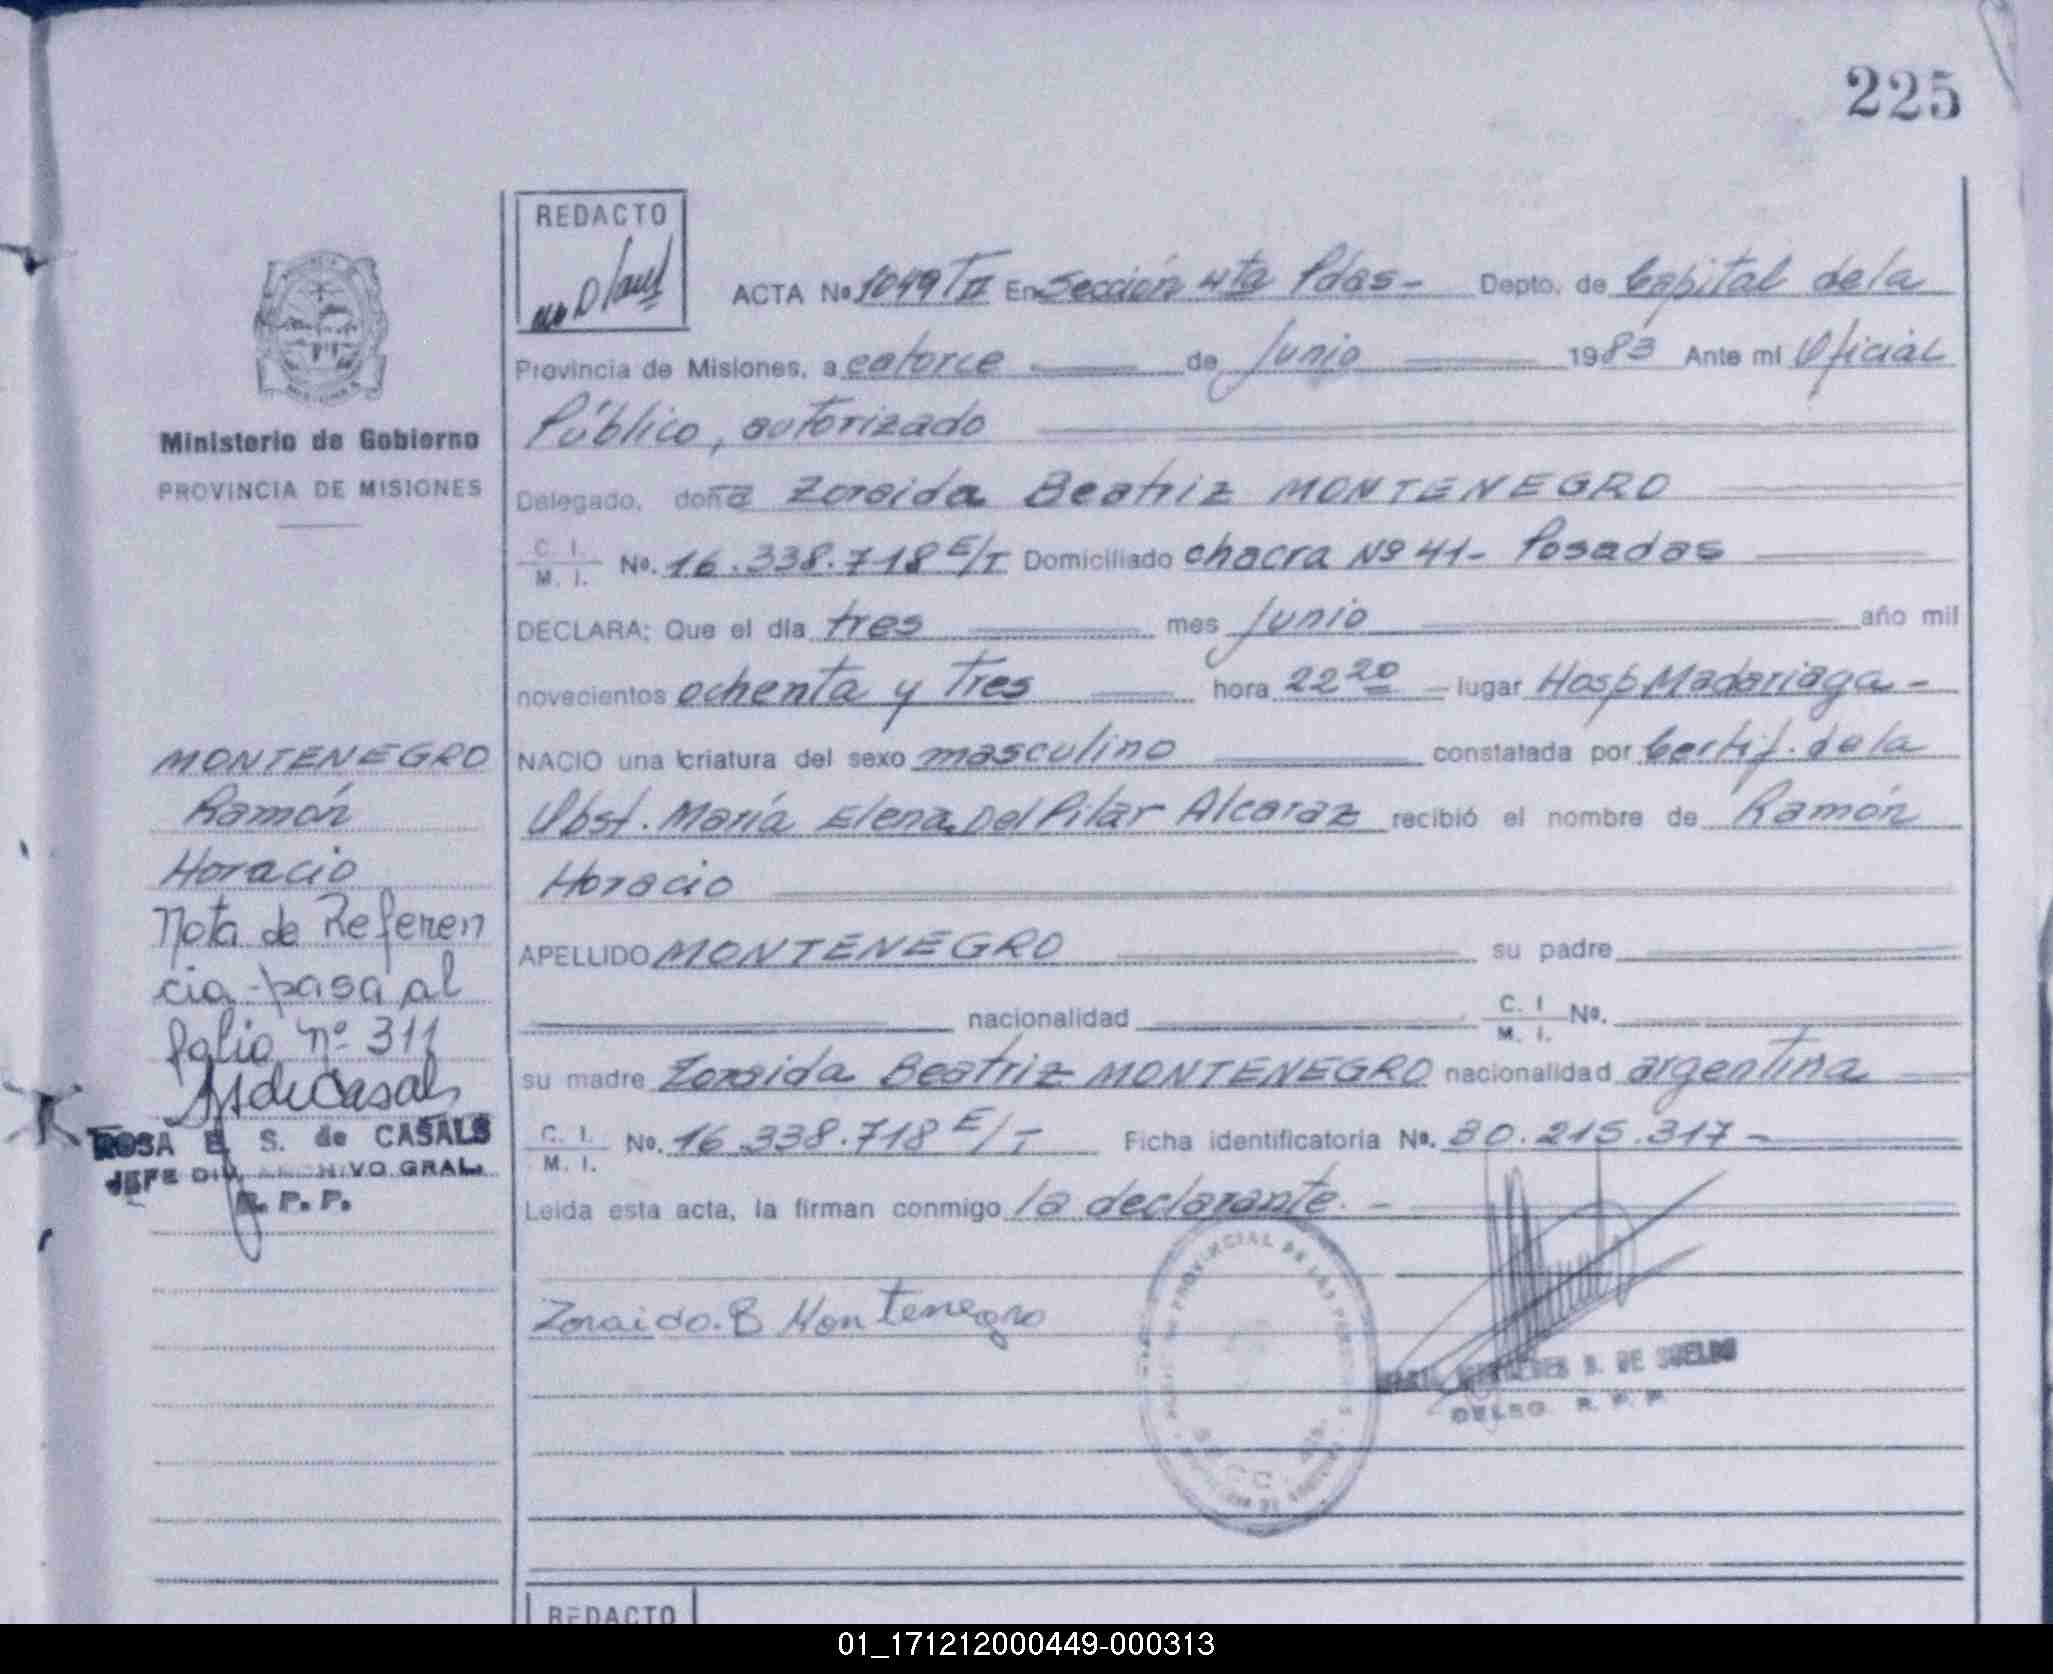 225
REDACTO
ACTA No 1049 T II En Sección 4ta Pdas - Depto. de Capital de la
Provincia de Misiones, a catorce de Junio 1983 Ante mi Oficial
Público, autorizado
Ministerio de Gobierno
PROVINCIA DE MISIONES
Delegado, doña Zoraida Beatriz MONTENEGRO
C. I.
M. I. No. 16.338.718 E/T Domiciliado chacra Nº 41- Posadas
DECLARA: Que el día tres mes Junio año mil
novecientos ochenta y Tres hora 22 20 - lugar Hosp Madariaga -
NACIO una criatura del sexo masculino constatada por Certif. de la
Obst. María Elena Del Pilar Alcaraz recibió el nombre de Ramón
Horacio
APELLIDO MONTENEGRO su padre
nacionalidad C. I
M. I. No.
su madre Zoraida Beatriz MONTENEGRO nacionalidad argentina
C. I.
M. I. No. 16.338.718 E/T Ficha identificatoria No. 30.215.317 -
Leida esta acta, la firman conmigo la declarante. -
Zoraida. B Montenegro
DE SUELDO
DELEG. R. P. P.
MONTENEGRO
Ramón
Horacio
Nota de Referen
cia - pasa al
folio nº 311
ROSA E. S. de CASALS
JEFE DIV. ARCHIVO GRAL.
R. P. P.
REDACTO
01_171212000449-000313